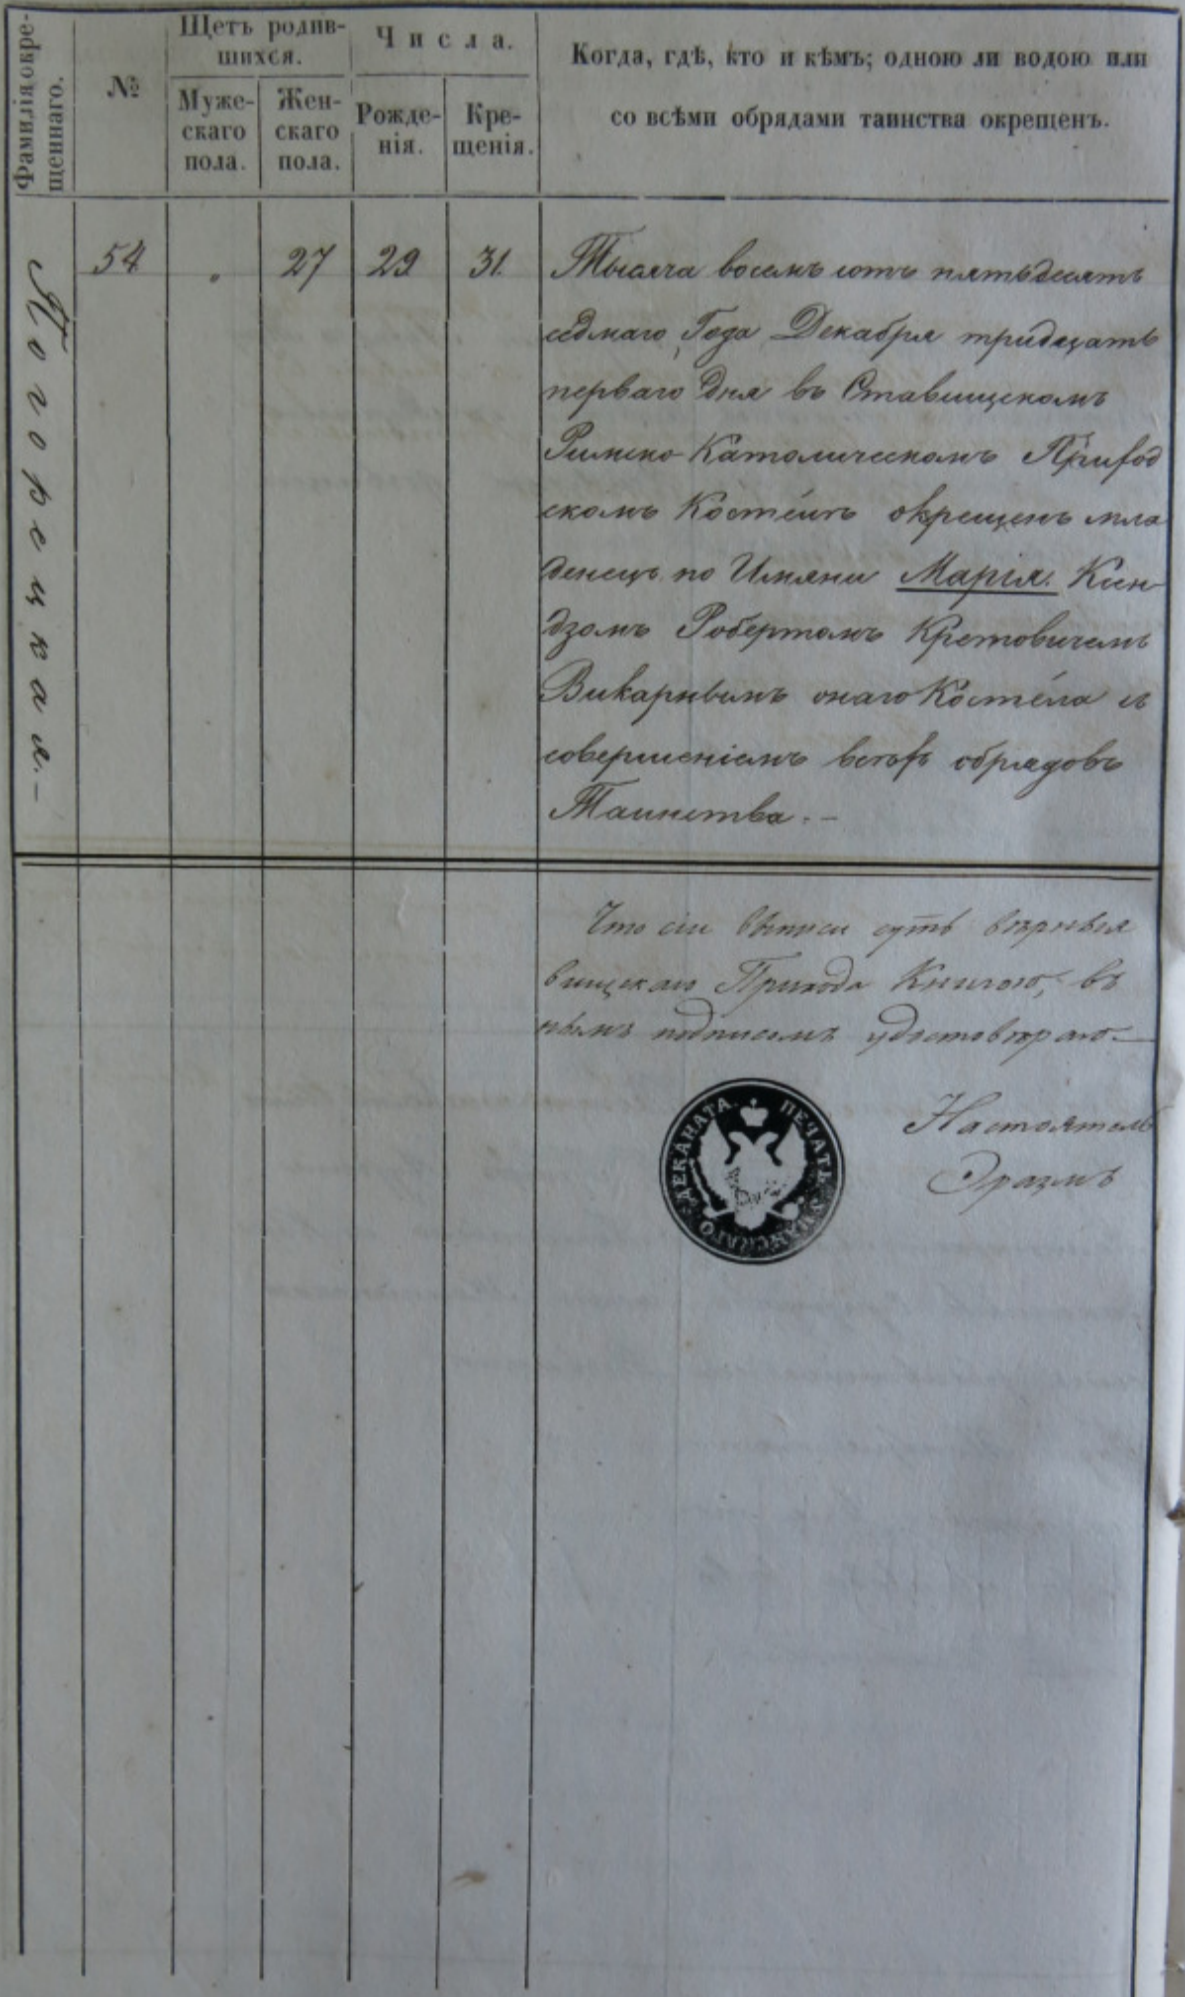 Фамилія окре-
щеннаго.
№
Щетъ родив-
шихся.
Муже-
скаго
пола.
Жен-
скаго
пола.
Числа.
Рожде-
нія.
Кре-
щенія.
Когда, гдѣ, кто и кѣмъ; одною ли водою или
со всѣми обрядами таинства окрещенъ.
Погорецкая.—
54
"
27
29
31.
Тысяча восемь сотъ пятьдесятъ
седмаго Года Декабря тридцать
перваго дня въ Ставищскомъ
Римско-Католическомъ Приход
скомъ Костелѣ окрещенъ мла
денецъ по Имяни Марія. Ксен-
дзомъ Робертомъ Кретовичемъ
Викарнымъ онаго Костела съ
совершеніемъ всѣхъ обрядовъ
Таинства.—
Что сіи выписи суть вѣрныя
вищскаго Прихода Книгою, въ
нымъ подписомъ удостовѣряю.—
ПЕЧАТЬ УМАНСКАГО ДЕКАНАТА.
Настоятель
Эразмъ